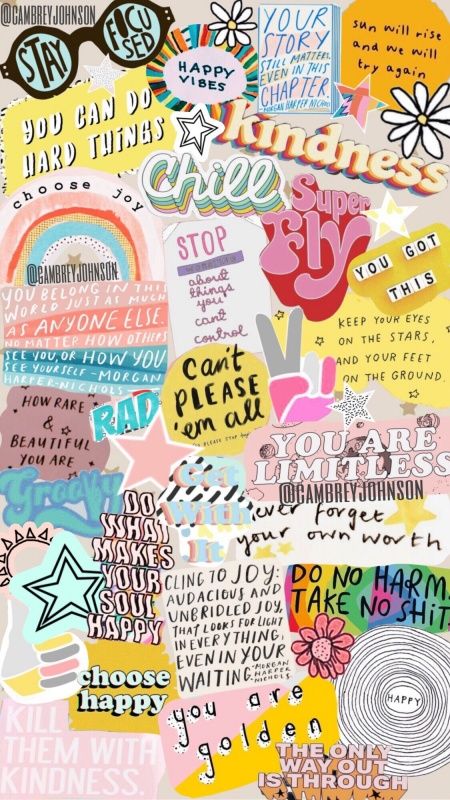 @GAMBREYJOHNSON
STAY
FOCU
SED
HAPPY
VIBES
YOUR
STORY
STILL MATTERS,
EVEN IN THIS
CHAPTER
-MORGAN HARPER NICHOLS
sun will rise
and we will
try again
YOU CAN DO
HARD THINGS
kindness
choose joy
Chill
Super
Fly
STOP
about
things
you
can't
control
YOU GOT
THIS
@GAMBREYJOHNSON
YOU BELONG IN THIS
WORLD JUST AS MUCH
AS ANYONE ELSE.
NO MATTER HOW OTHERS
SEE YOU, OR HOW YOU
SEE YOURSELF -MORGAN
HARPER-NICHOLS
KEEP YOUR EYES
ON THE STARS,
AND YOUR FEET
ON THE GROUND.
Can't
PLEASE
'em all
so PLEASE STOP
HOW RARE
&
BEAUTIFUL
YOU ARE
RAD
Groovy
YOU ARE
LIMITLESS
@GAMBREYJOHNSON
Get
With
it
never forget
your own worth
DO
WHAT
MAKES
YOUR
SOUL
HAPPY
CLING TO JOY:
AUDACIOUS AND
UNBRIDLED JOY,
THAT LOOKS FOR LIGHT
IN EVERYTHING,
EVEN IN YOUR
WAITING.
-MORGAN
HARPER
NICHOLS
DO NO HARM.
TAKE NO SHIT.
choose
happy
you are
golden
HAPPY
KILL
THEM WITH
KINDNESS.
THE ONLY
WAY OUT
IS THROUGH